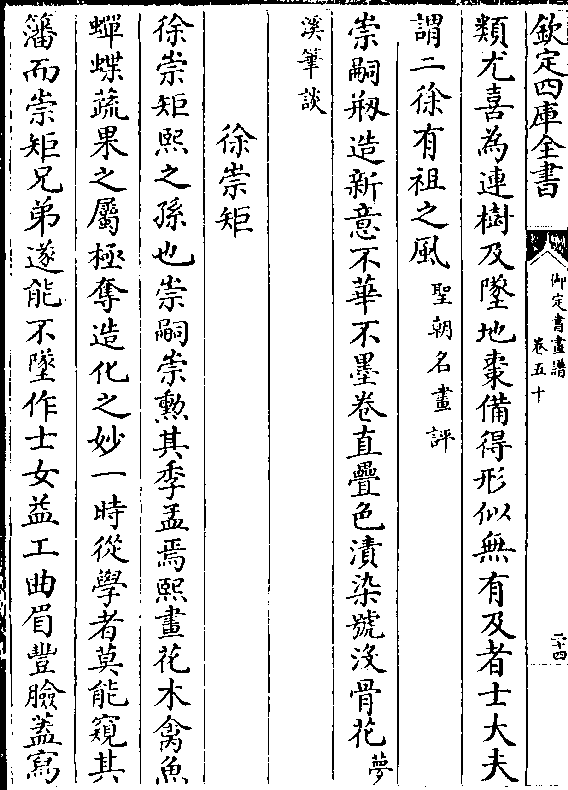 欽定四庫全書
御定書畫譜
卷五十
二十四
類尤喜為連樹及墜地棗備得形似無有及者士大夫
謂二徐有祖之風聖朝名畫評
崇嗣剏造新意不華不墨卷直疊色漬染號沒骨花夢
溪筆談
徐崇矩
徐崇矩熙之孫也崇嗣崇勲其季孟焉熙畫花木禽魚
蟬蝶蔬果之屬極奪造化之妙一時從學者莫能窺其
籓而崇矩兄弟遂能不墜作士女益工曲眉豐臉蓋寫